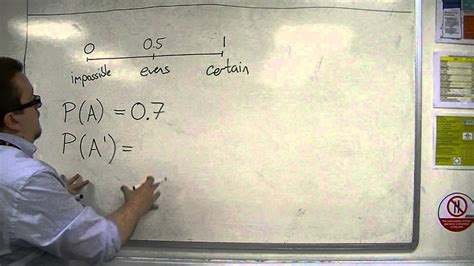 0 0.5 1
impossible evens certain
P(A) = 0.7
P(A') =